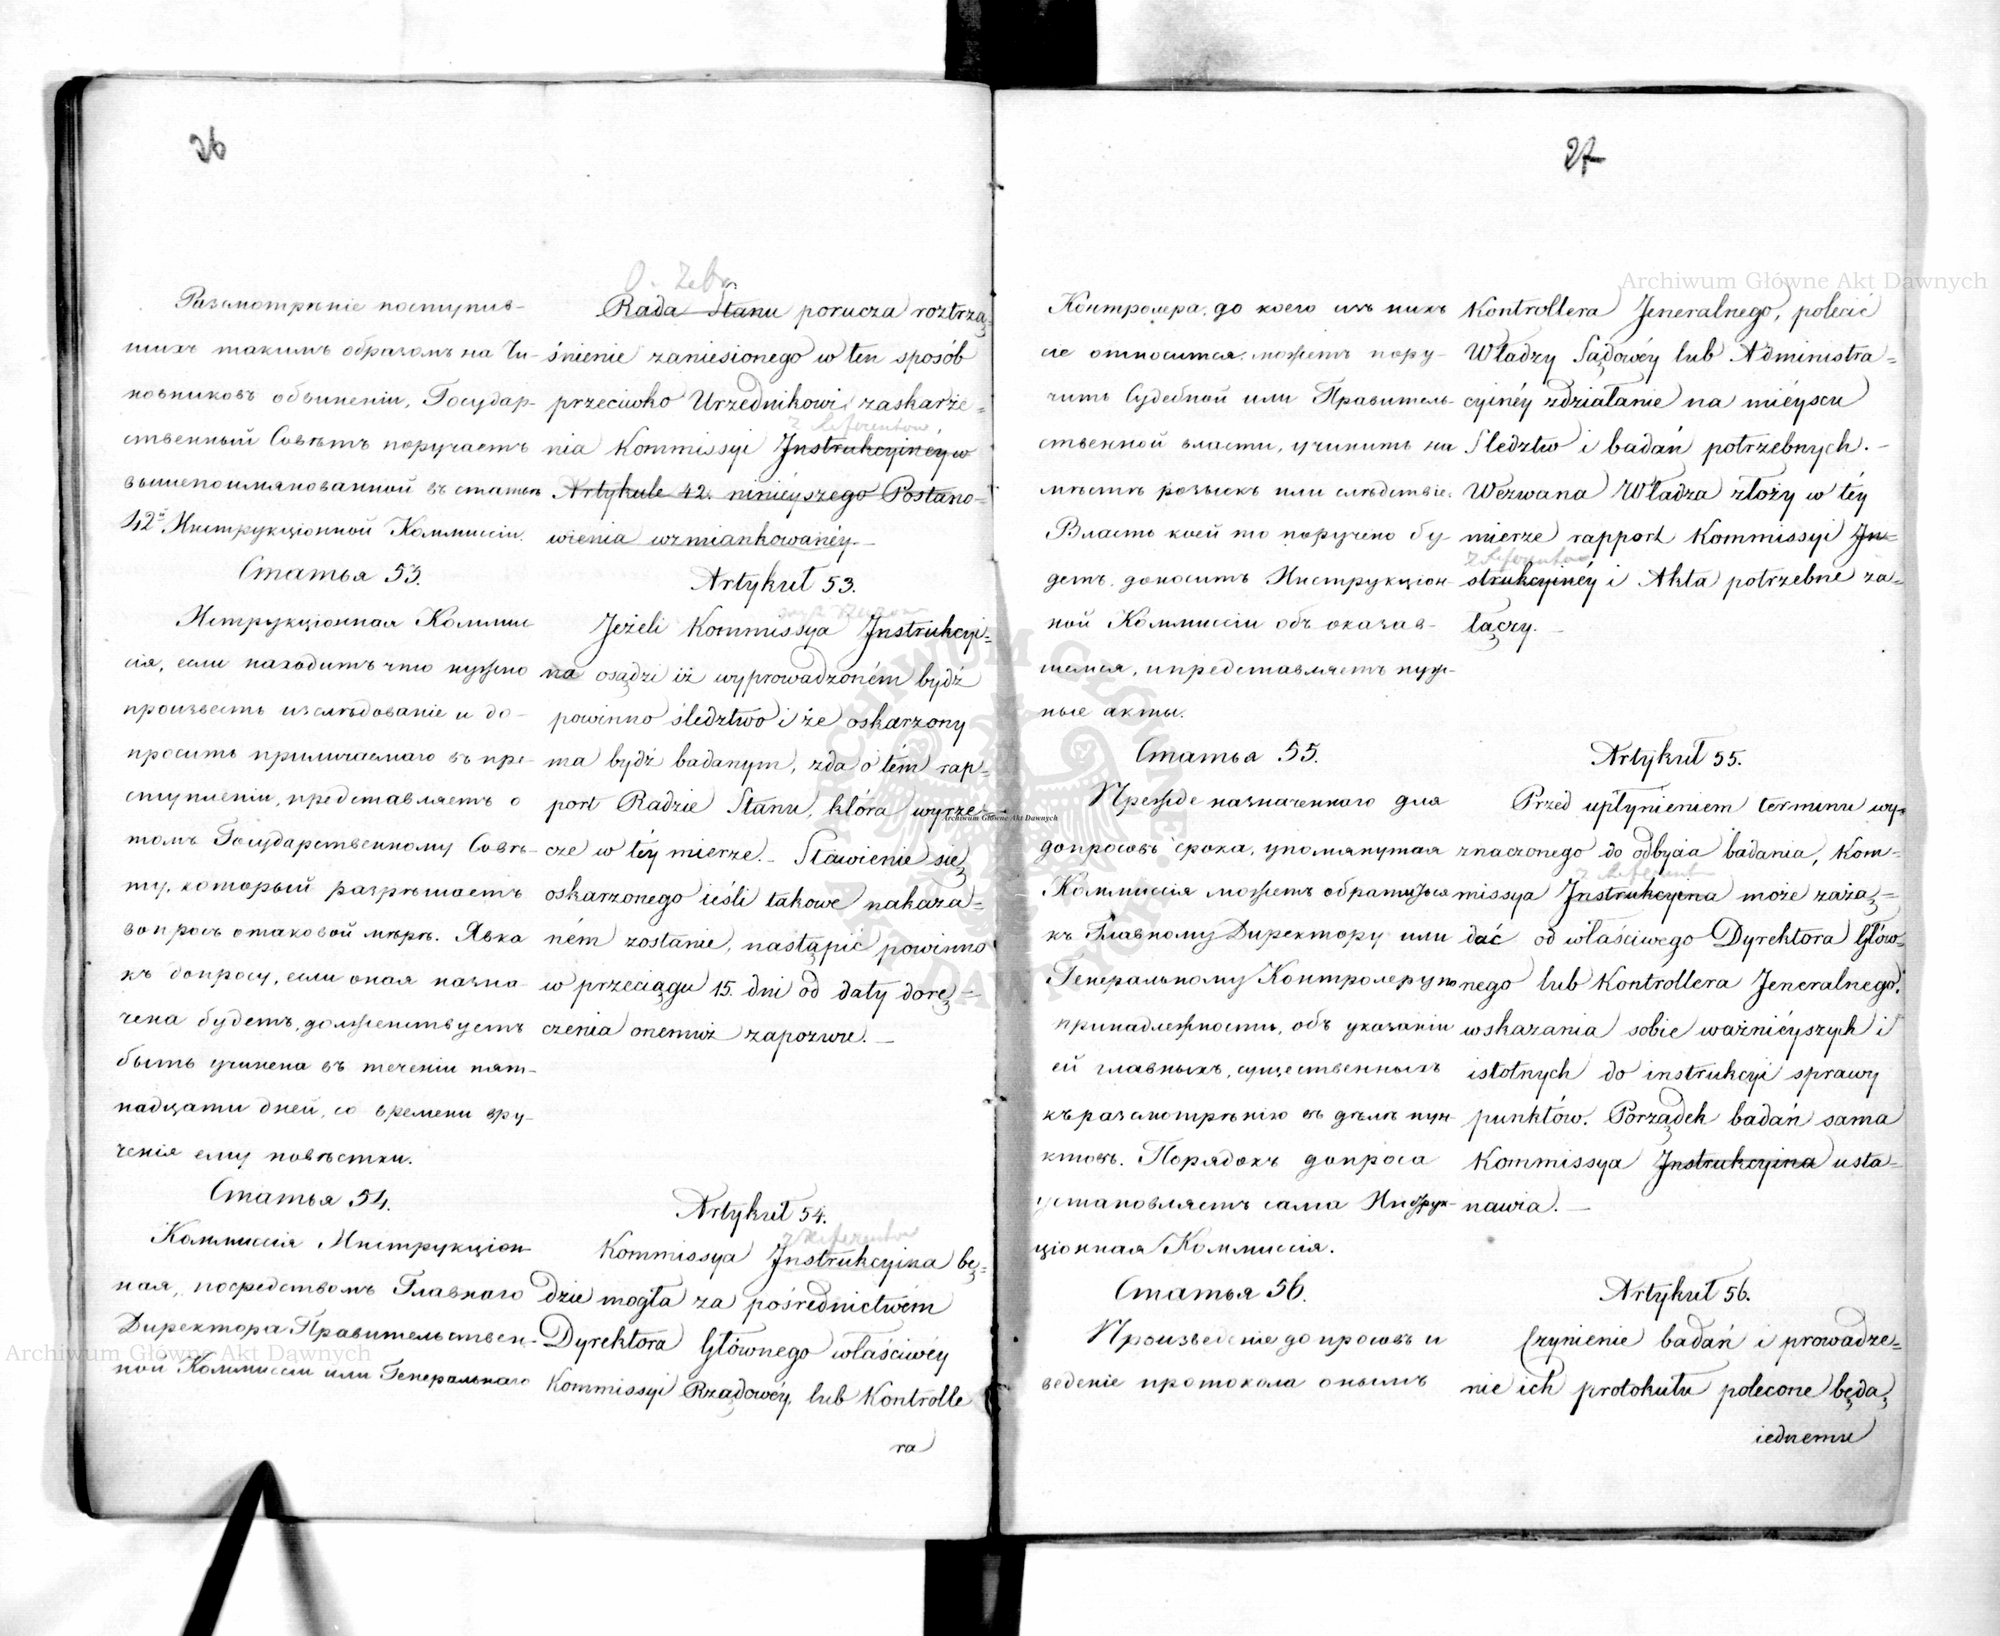 26
Разсмотрѣніе поступив-
шихъ такимъ образомъ на Чи-
новниковъ обвиненіи, Государ-
ственный Совѣтъ поручаетъ
вышепоимянованной въ статьѣ
42й Инструкціонной Коммисіи.
Статья 53.
Иструкціонная Коммис
сія, если находитъ что нужно
произвесть изслѣдованіе и до-
просить приличаемаго въ пре-
ступленіи, представляетъ о
томъ Государственному Совѣ-
ту, который разрѣшаетъ
вопросъ о таковой мѣрѣ. Явка
къ допросу, если оная назна-
чена будетъ, долженствуетъ
быть учинена въ теченіи пят-
надцати дней, со времени вру-
ченія ему повѣстки.
Статья 54.
Коммиссія Инструкціон
ная, посредствомъ Главнаго
Директора Правительствен-
ной Коммисіи или Генеральнаго
O. Zebr.
Rada Stanu porucza roztrzą
śnienie zaniesionego w ten sposób
przeciwko Urzędnikowi zaskarże=
z Referentów
nia Kommissyi Instrukcyinéy w
Artykule 42. niniéyszego Postano=
wienia wzmiankowanéy.
Artykuł 53.
Jeżeli Kommissya Instrukcyi=
na osądzi iż wyprowadzoném bydź
powinno śledztwo i że oskarzony
ma bydź badanym, zda o tém rap=
port Radzie Stanu, która wyrze=
cze w téy mierze. Stawienie się
oskarzonego ieśli takowe nakaza=
ném zostanie, nastąpić powinno
w przeciągu 15. dni od daty dorę=
czenia onemuż zapozwu.
Artykuł 54.
z Referentów
Kommissya Instrukcyina bę=
dzie mogła za pośrednictwem
Dyrektora Głównego właściwéy
Kommissyi Rządowéy, lub Kontrolle
ra
27
Контролера, до коего изъ нихъ
сіе относится, можетъ пору-
чить Судебной или Правитель-
ственной власти, учинить на
мѣстѣ розыскъ или слѣдствіе.
Власть коей то поручено бу-
детъ, доноситъ Инструкціон-
ной Коммиссіи объ оказав-
шемся, и представляетъ нуж-
ные акты.
Статья 55.
Прежде назначеннаго для
допросовъ срока, упомянутая
Коммиссія можетъ обратиться
къ Главному Директору или
Генеральному Контролеру по
принадлежности, объ указаніи
ей главныхъ, существенныхъ
къ разсмотрѣнію въ дѣлѣ пун
ктовъ. Порядокъ допроса
установляетъ сама Инструк-
ціонная Коммиссія.
Статья 56.
Произведеніе допросовъ и
веденіе протокола онымъ
Kontrollera Jeneralnego, polecić
Władzy Sądowéy lub Administra=
cyinéy zdziałanie na mieyscu
Śledztw i badań potrzebnych.
Wezwana Władza złoży w téy
mierze rapport Kommissyi In=
z Referentów
strukcyinéy i Akta potrzebne za=
łączy.
Artykuł 55.
Przed upłynieniem terminu wy=
znaczonego do odbycia badania, Kom=
z Referent
missya Instrukcyina może zażą=
dać od właściwego Dyrektora Głów=
nego lub Kontrollera Jeneralnego,
wskazania sobie ważniéyszych i
istotnych do instrukcyi sprawy
punktów. Porządek badań sama
Kommissya Instrukcyina usta=
nawia.
Artykuł 56.
Czynienie badań i prowadze=
nie ich protokułu polecone będą
iednemu
Archiwum Główne Akt Dawnych
Archiwum Główne Akt Dawnych
Archiwum Główne Akt Dawnych